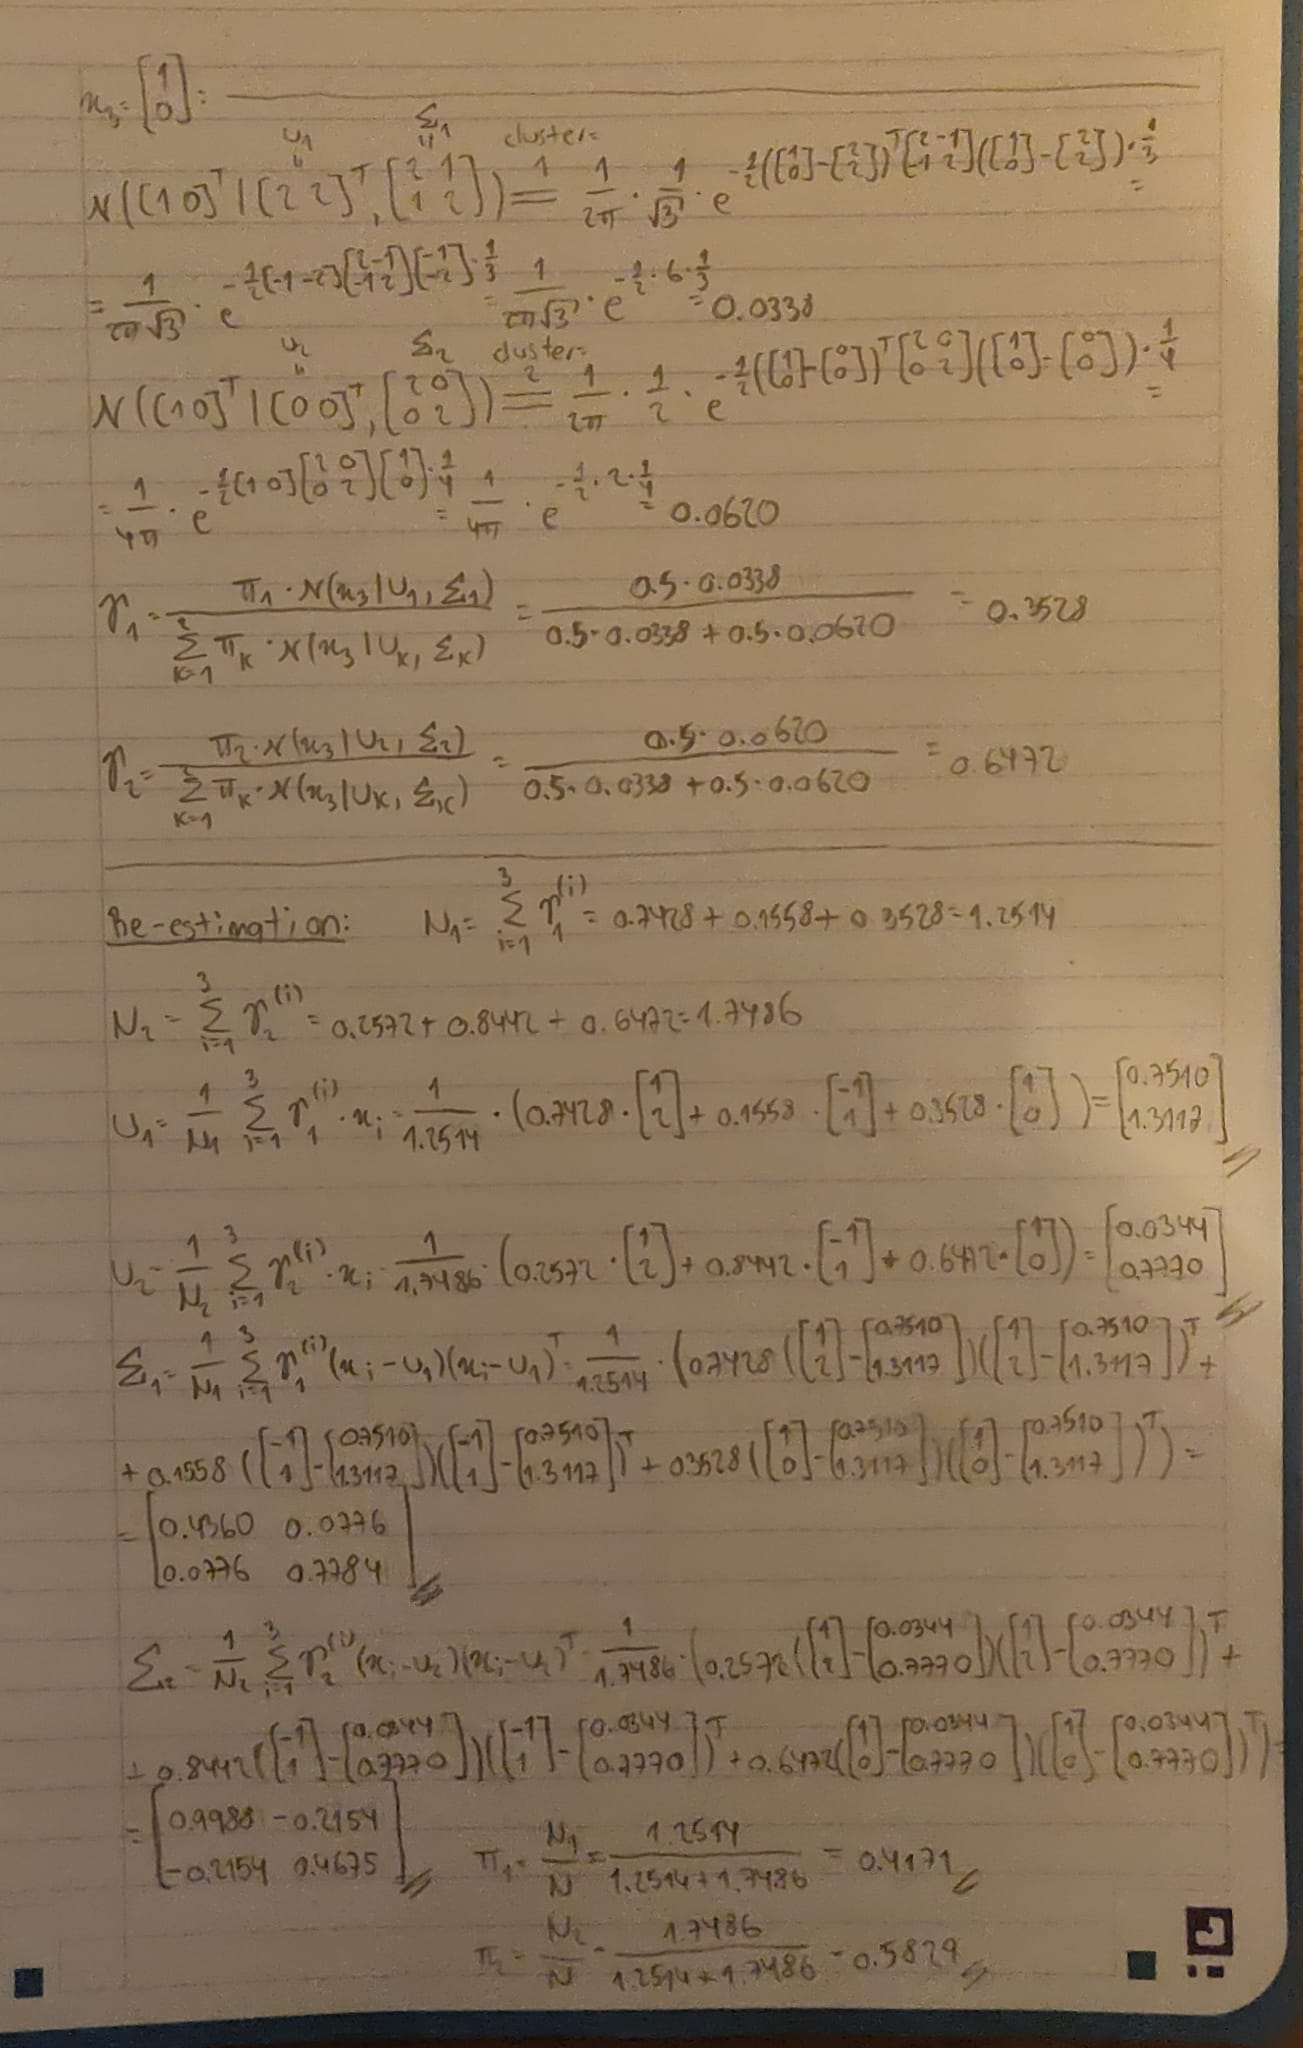 x₃ = [1 0] :
u₁ Σ₁ cluster=
N([1 0]ᵀ | [2 2]ᵀ, [2 1; 1 2]) =¹ 1/2π · 1/√3 · e^(-1/2([1 0]-[2 2])ᵀ[2 -1; -1 2]([1 0]-[2 2])·1/3) =
= 1/2π√3 · e^(-1/2[-1 -2][2 -1; -1 2][-1 -2]·1/3) = 1/2π√3 · e^(-1/2·6·1/3) = 0.0338
u₂ Σ₂ cluster=
N([1 0]ᵀ | [0 0]ᵀ, [2 0; 0 2]) =² 1/2π · 1/2 · e^(-1/2([1 0]-[0 0])ᵀ[2 0; 0 2]([1 0]-[0 0])·1/4) =
= 1/4π · e^(-1/2[1 0][2 0; 0 2][1 0]·1/4) = 1/4π · e^(-1/2·2·1/4) = 0.0620
γ₁ = π₁·N(x₃|u₁, Σ₁) / Σ_{k=1}^{2} π_k·N(x₃|u_k, Σ_k) = 0.5·0.0338 / 0.5·0.0338 + 0.5·0.0620 = 0.3528
γ₂ = π₂·N(x₃|u₂, Σ₂) / Σ_{k=1}^{2} π_k·N(x₃|u_k, Σ_k) = 0.5·0.0620 / 0.5·0.0338 + 0.5·0.0620 = 0.6472
Re-estimation: N₁ = Σ_{i=1}^{3} γ₁^(i) = 0.7428 + 0.1558 + 0.3528 = 1.2514
N₂ = Σ_{i=1}^{3} γ₂^(i) = 0.2572 + 0.8442 + 0.6472 = 1.7486
u₁ = 1/N₁ Σ_{i=1}^{3} γ₁^(i)·x_i = 1/1.2514 · (0.7428·[1 2] + 0.1558·[-1 1] + 0.3528·[1 0]) = [0.7510 1.3117]
u₂ = 1/N₂ Σ_{i=1}^{3} γ₂^(i)·x_i = 1/1.7486 · (0.2572·[1 2] + 0.8442·[-1 1] + 0.6472·[1 0]) = [0.0344 0.7770]
Σ₁ = 1/N₁ Σ_{i=1}^{3} γ₁^(i)(x_i-u₁)(x_i-u₁)ᵀ = 1/1.2514 · (0.7428([1 2]-[0.7510 1.3117])([1 2]-[0.7510 1.3117])ᵀ +
+ 0.1558([-1 1]-[0.7510 1.3117])([-1 1]-[0.7510 1.3117])ᵀ + 0.3528([1 0]-[0.7510 1.3117])([1 0]-[0.7510 1.3117])ᵀ) =
= [0.4360 0.0776; 0.0776 0.7784]
Σ₂ = 1/N₂ Σ_{i=1}^{3} γ₂^(i)(x_i-u₂)(x_i-u₂)ᵀ = 1/1.7486 · (0.2572([1 2]-[0.0344 0.7770])([1 2]-[0.0344 0.7770])ᵀ +
+ 0.8442([-1 1]-[0.0344 0.7770])([-1 1]-[0.0344 0.7770])ᵀ + 0.6472([1 0]-[0.0344 0.7770])([1 0]-[0.0344 0.7770])ᵀ) =
= [0.9988 -0.2154; -0.2154 0.4675]
π₁ = N₁/N = 1.2514 / 1.2514+1.7486 = 0.4171
π₂ = N₂/N = 1.7486 / 1.2514+1.7486 = 0.5829